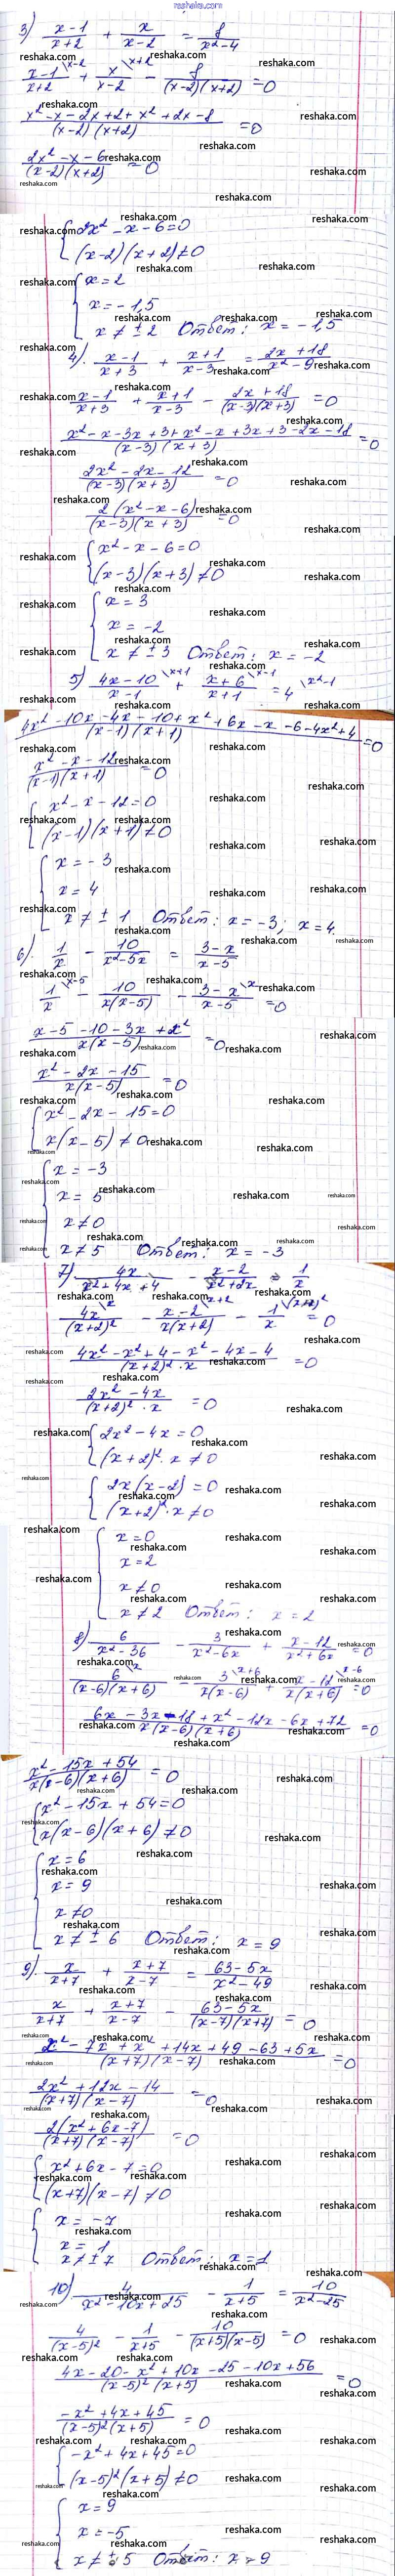 reshaka.com
3) (x-1)/(x+2) + x/(x-2) = 8/(x²-4)
(x-1)/(x+2) \x-2 + x/(x-2) \x+2 - 8/((x-2)(x+2)) =0
(x²-x-2x+2+x²+2x-8)/((x-2)(x+2)) =0
(2x²-x-6)/((x-2)(x+2)) =0
{2x²-x-6=0
(x-2)(x+2)≠0
{x=2
x=-1,5
x≠±2 Ответ: x=-1,5
4). (x-1)/(x+3) + (x+1)/(x-3) = (2x+18)/(x²-9)
(x-1)/(x+3) + (x+1)/(x-3) - (2x+18)/((x-3)(x+3)) =0
(x²-x-3x+3+x²-x+3x+3-2x-18)/((x-3)(x+3)) =0
(2x²-2x-12)/((x-3)(x+3)) =0
2(x²-x-6)/((x-3)(x+3)) =0
{x²-x-6=0
(x-3)(x+3)≠0
{x=3
x=-2
x≠±3 Ответ: x=-2
5) (4x-10)/(x-1) \x+1 + (x+6)/(x+1) \x-1 =4 \x²-1
(4x²-10x-4x-10+x²+6x-x-6-4x²+4)/((x-1)(x+1)) =0
(x²-x-12)/((x-1)(x+1)) =0
{x²-x-12=0
(x-1)(x+1)≠0
{x=-3
x=4
x≠±1 Ответ: x=-3; x=4.
6). 1/x - 10/(x²-5x) = (3-x)/(x-5)
1/x \x-5 - 10/(x(x-5)) - (3-x)/(x-5) \x =0
(x-5-10-3x+x²)/(x(x-5)) =0
(x²-2x-15)/(x(x-5)) =0
{x²-2x-15=0
x(x-5)≠0
{x=-3
x=5
x≠0
x≠5 Ответ: x=-3
7) 4x/(x²+4x+4) - (x-2)/(x²+2x) = 1/x
4x/(x+2)² \x - (x-2)/(x(x+2)) \x+2 - 1/x \(x+2)² =0
(4x²-x²+4-x²-4x-4)/((x+2)²·x) =0
(2x²-4x)/((x+2)²·x) =0
{2x²-4x=0
(x+2)²·x≠0
{2x(x-2)=0
(x+2)²·x≠0
{x=0
x=2
x≠0
x≠2 Ответ: x=2
8) 6/(x²-36) - 3/(x²-6x) + (x-12)/(x²+6x) =0
6/((x-6)(x+6)) \x - 3/(x(x-6)) \x+6 + (x-12)/(x(x+6)) \x-6 =0
(6x-3x-18+x²-12x-6x+72)/(x(x-6)(x+6)) =0
(x²-15x+54)/(x(x-6)(x+6)) =0
{x²-15x+54=0
x(x-6)(x+6)≠0
{x=6
x=9
x≠0
x≠±6 Ответ: x=9
9). x/(x+7) + (x+7)/(x-7) = (63-5x)/(x²-49)
x/(x+7) + (x+7)/(x-7) - (63-5x)/((x-7)(x+7)) =0
(x²-7x+x²+14x+49-63+5x)/((x+7)(x-7)) =0
(2x²+12x-14)/((x+7)(x-7)) =0
2(x²+6x-7)/((x+7)(x-7)) =0
{x²+6x-7=0
(x+7)(x-7)≠0
{x=-7
x=1
x≠±7 Ответ: x=1
10) 4/(x²-10x+25) - 1/(x+5) = 10/(x²-25)
4/(x-5)² - 1/(x+5) - 10/((x+5)(x-5)) =0
(4x-20-x²+10x-25-10x+56)/((x-5)²(x+5)) =0
(-x²+4x+45)/((x-5)²(x+5)) =0
{-x²+4x+45=0
(x-5)²(x+5)≠0
{x=9
x=-5
x≠±5 Ответ: x=9